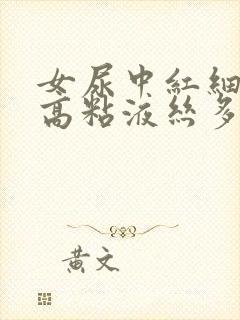 女尿中紅細
高粘液丝多
黄文